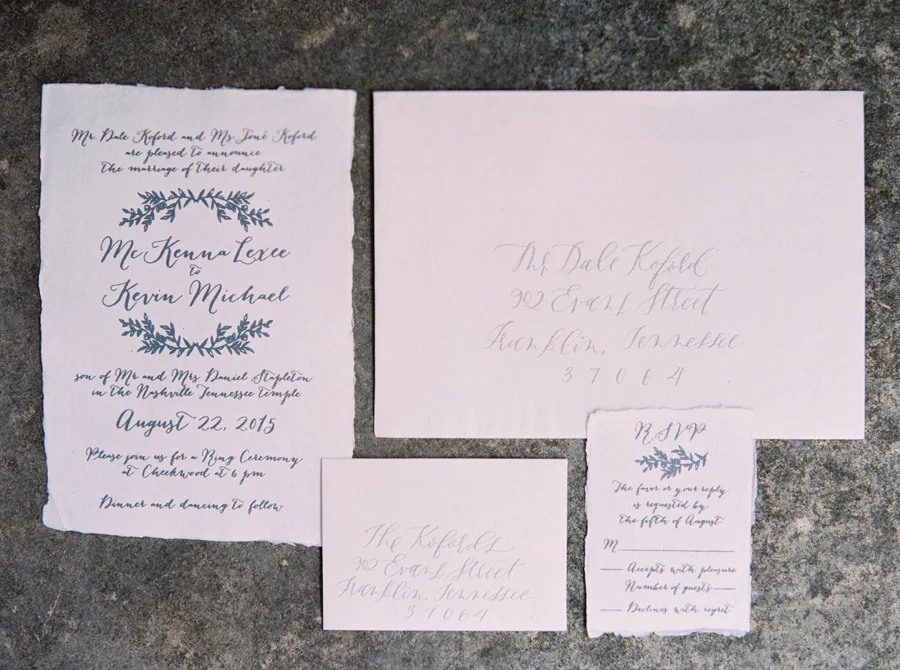 Mr. Dale Koford and Ms. Joné Koford
are pleased to announce
the marriage of their daughter
McKenna Lexee
to
Kevin Michael
son of Mr and Mrs Daniel Stapleton
in the Nashville Tennessee temple
August 22, 2015
Please join us for a Ring Ceremony
at Cheekwood at 6 pm
Dinner and dancing to follow
Mr Dale Koford
902 Evans Street
Franklin, Tennessee
37064
The Kofords
902 Evans Street
Franklin, Tennessee
37064
RSVP
The favor or your reply
is requested by
the fifth of August
M
Accepts with pleasure
Number of guests
Declines with regret